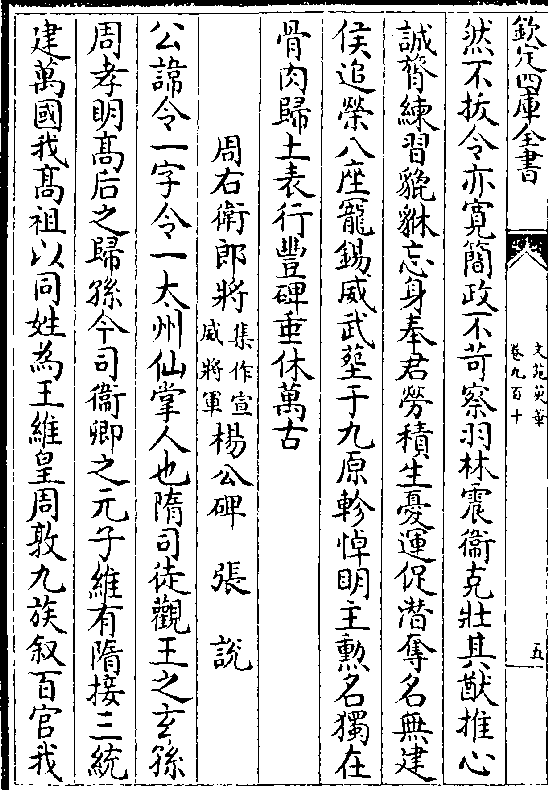 欽定四庫全書
文苑英華
卷九百十
五
然不抜令亦寛簡政不苛察羽林震衞克壯其猷推心
誠膂練習貔貅忘身奉君勞積生憂運促潛奪名無建
侯追榮八座寵錫威武塟于九原軫悼明主勲名獨在
骨肉歸土表行豐碑垂休萬古
周右衛郎將集作宣威將軍楊公碑 張說
公諱令一字令一太州仙掌人也隋司徒觀王之玄孫
周孝明髙后之歸孫今司衞卿之元子維有隋接三統
建萬國我髙祖以同姓為王維皇周敦九族叙百官我